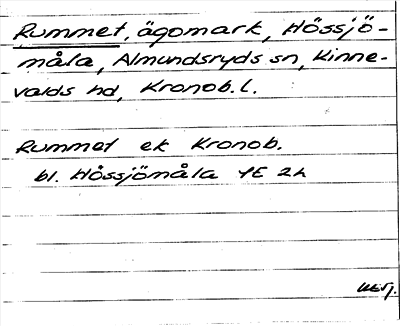 Rummet, ägomark, Hössjö-
måla, Almundsryds sn, Kinne-
valds hd, Kronob. l.
Rummet ek Kronob.
bl. Hössjömåla 4E 2h